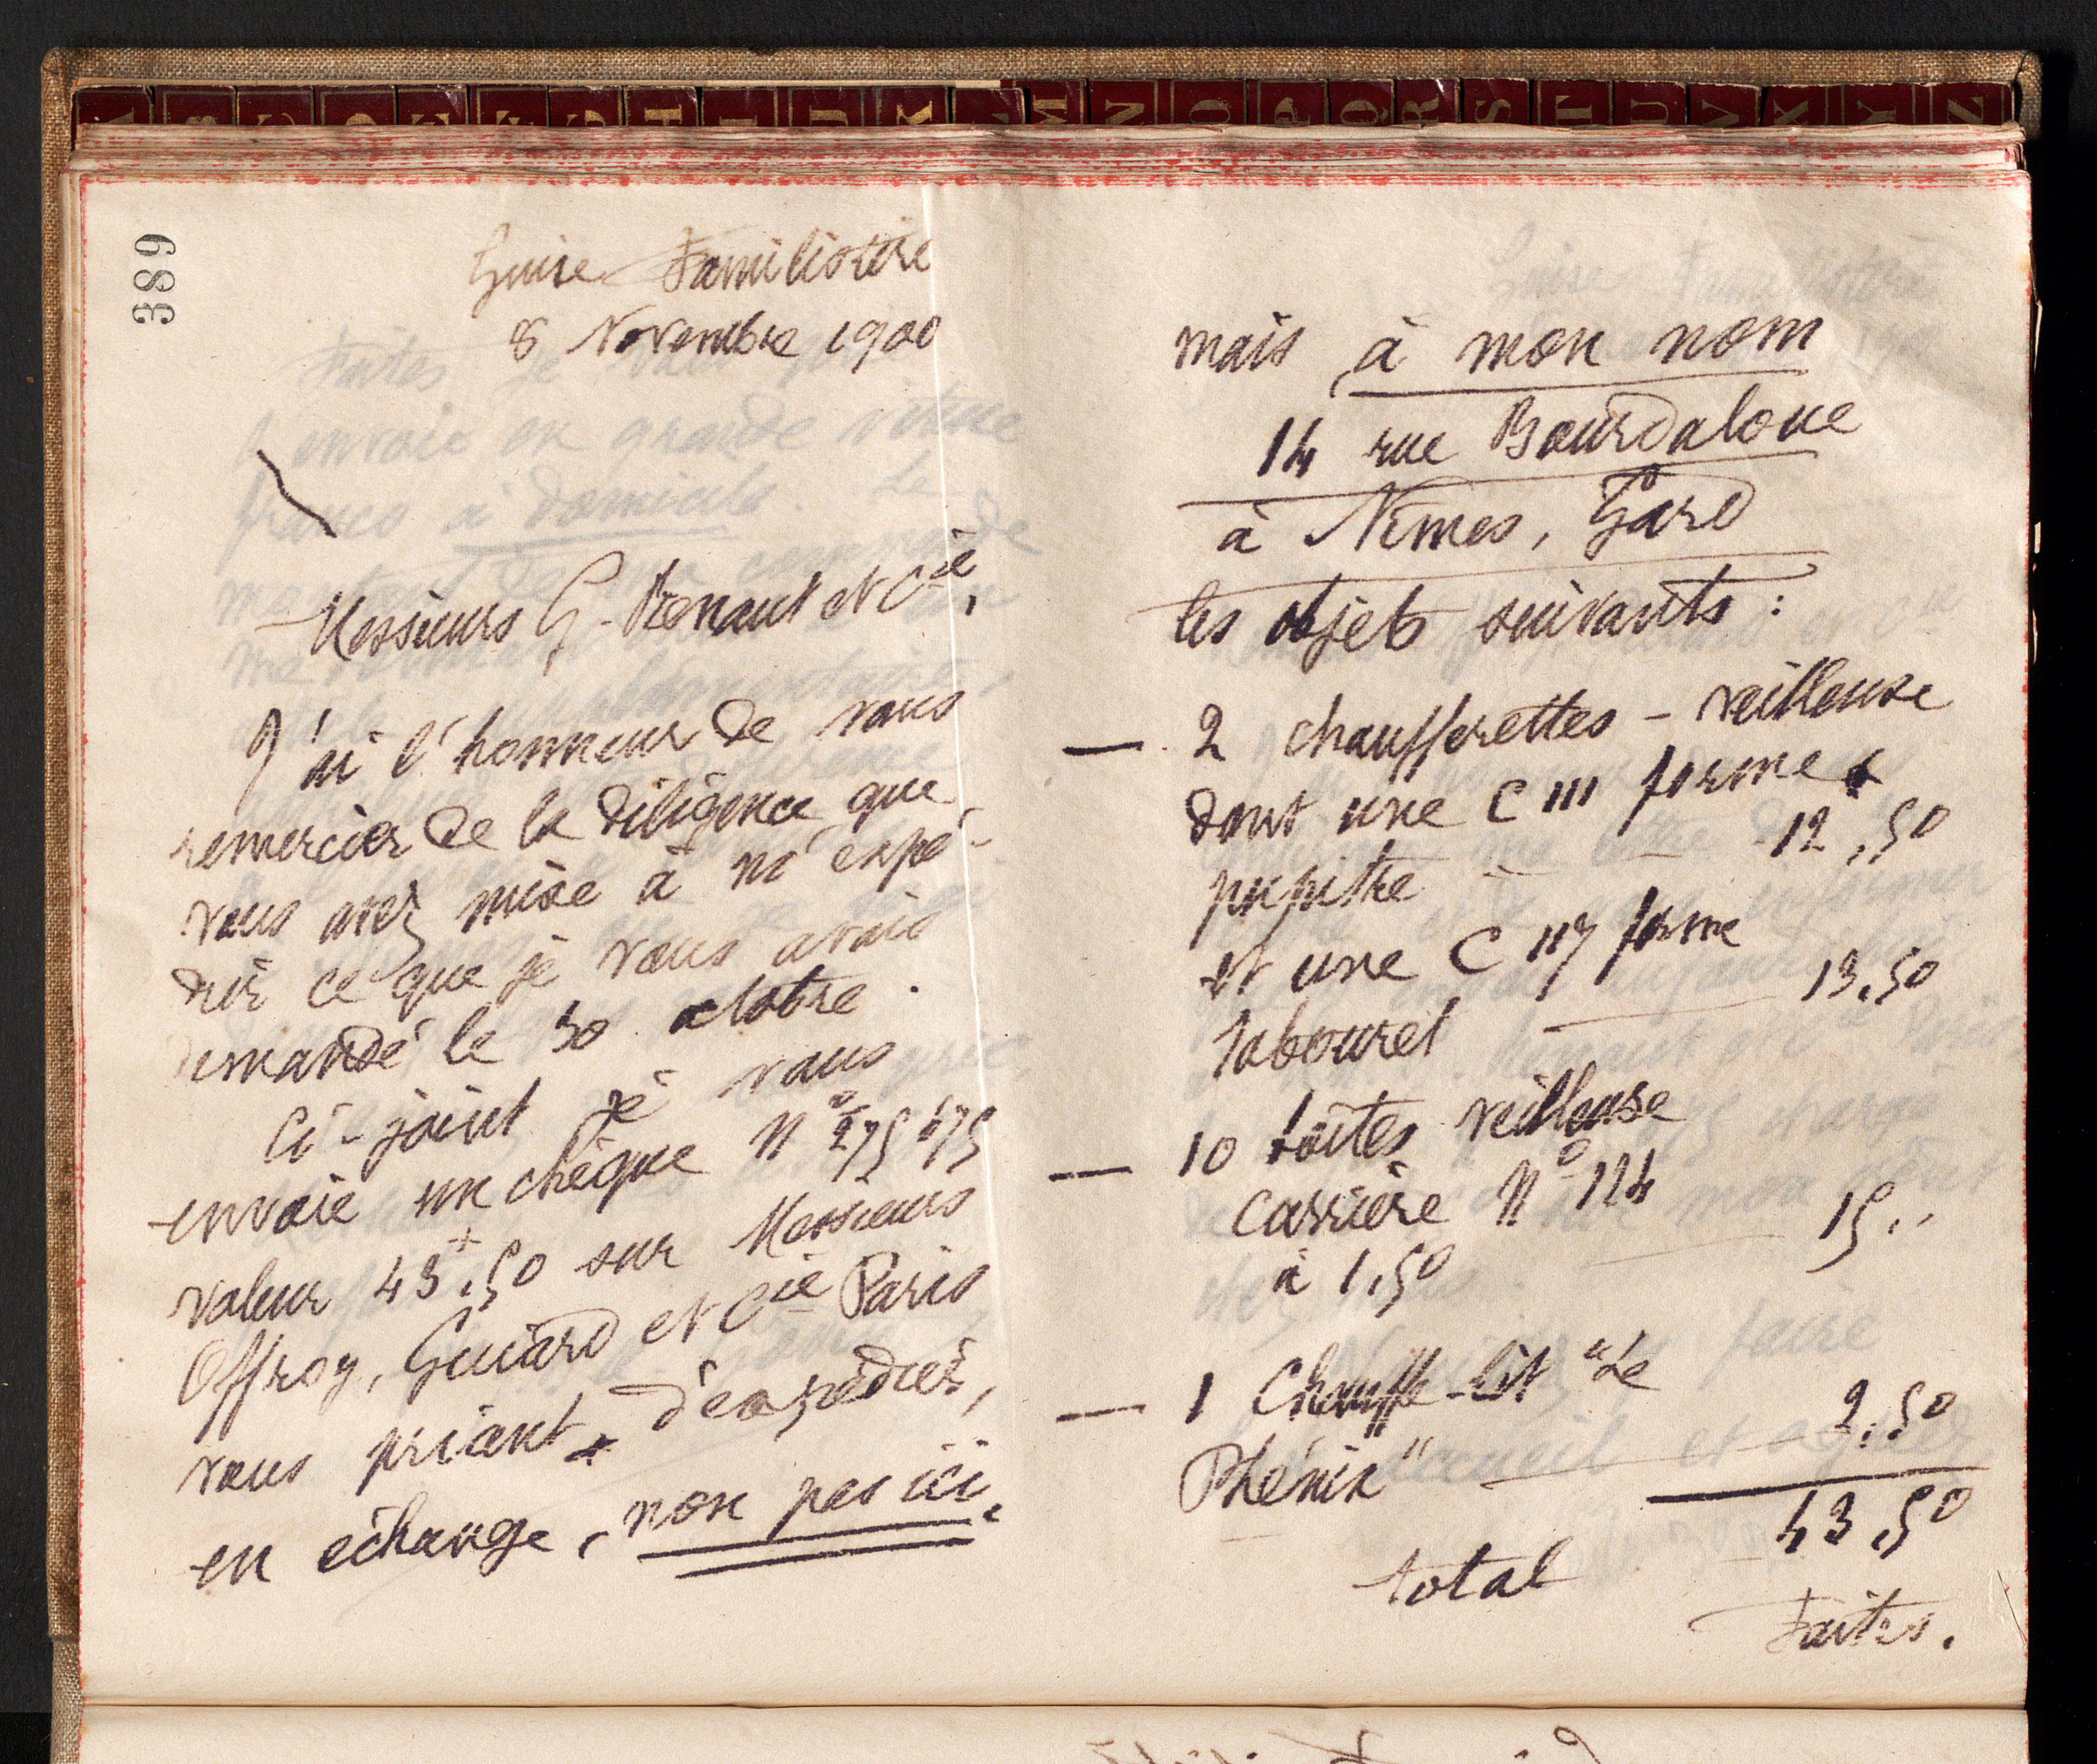 A B C D E F G H I J K L M N O P Q R S T U V X Y Z
389
Guise Familistère
8 Novembre 1900
Messieurs G. Renaut et Cie,
J'ai l'honneur de vous
remercier de la diligence que
vous avez mise à m'expé-
dier ce que je vous avais
demandé le 30 octobre.
Ci-joint je vous
envoie un chèque No 275 675
valeur 43,50 sur Messieurs
Offroy, Guiard et Cie Paris
vous priant d'expédier,
en échange, non pas ici,
mais à mon nom
14 rue Bourdaloue
à Nîmes, Gard
les objets suivants :
— 2 chaufferettes - veilleuse
dont une C 111 forme
pupitre — 12,50
et une C 117 forme
tabouret — 13,50
— 10 boîtes veilleuse
Carrière No 124
à 1,50 — 15,,
— 1 Chauffe-lit "Le
Phénix" — 2,50
total 43,50
Faites.